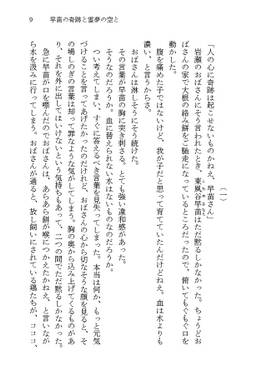 9　早苗の奇跡と霊夢の空と
（一）
「人の心に奇跡は起こせないものかねえ、早苗さん」
岩瀬のおばさんにそう言われたとき、東風谷早苗はただ黙るしかなかった。ちょうどお
ばさんの家で大根の絡み餅をご馳走になっているところだったので、俯いてもぐもぐ口を
動かした。
「腹を痛めた子ではないけど、我が子だと思って育てていたんだけどねえ。血は水よりも
濃い、と言うからさ」
おばさんは淋しそうにそう続けた。
その言葉が早苗の胸に突き刺さる。とても強い違和感があった。
そうなのだろうか。血に替えられない水はないものなのだろうか。
つい考えてしまい、すぐに答えるべき言葉を見失ってしまった。本当は何か、もっと元気
づける言葉を言ってあげたかったのだけれど、おばさんの心から切なそうな顔を見ると、そ
の場しのぎの言葉は却って罪なような気がしてしまう。胸の奥から込み上げてくるものが
あり、それを外に出してはいけないという気持ちもあって、二つの間でただ黙るしかなかった。
急に早苗が口を噤んだのでおばさんは、あらあら餅が喉につかえたかねえ、と言いなが
ら水を汲みに行ってしまう。おばさんが通ると、放し飼いにされている鶏たちが、コココ、